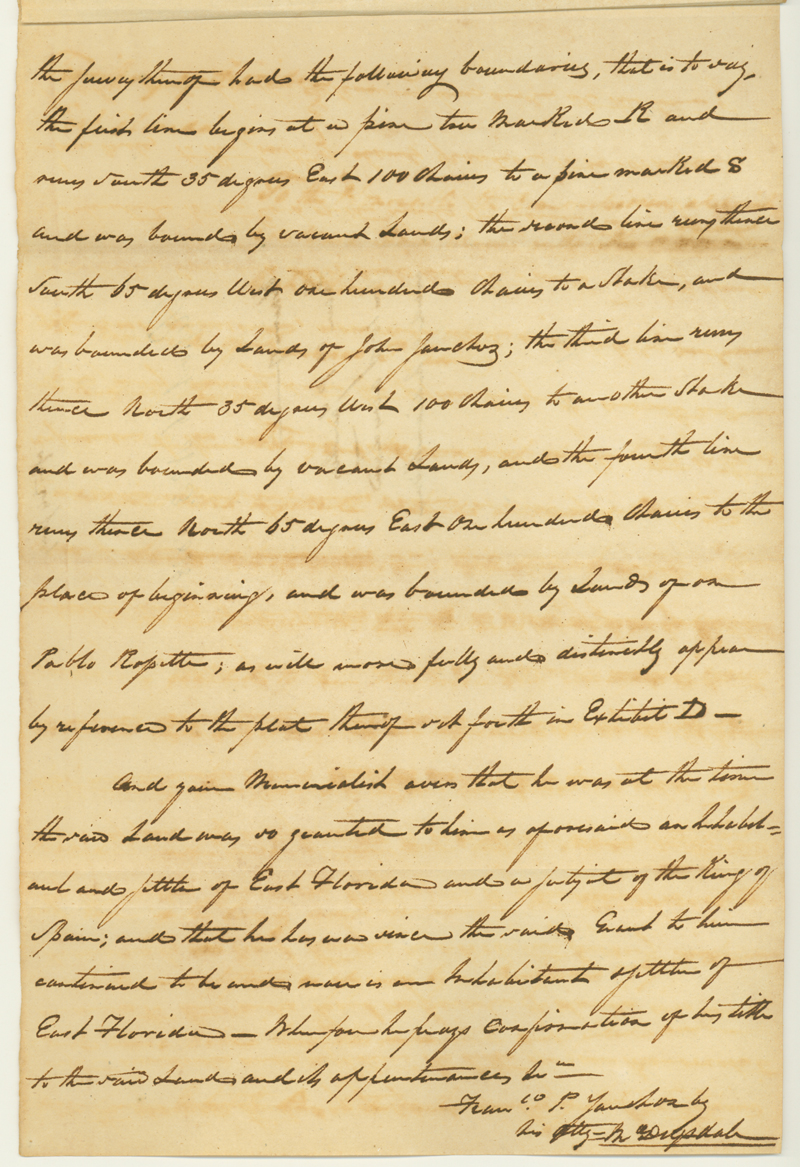 the survey thereof had the following boundaries, that is to say,
the first line begins at a pine tree marked R and
runs South 35 degrees East 100 Chains to a pine marked 8
and was bounded by vacant Lands; the second line runs thence
South 65 degrees West one hundred Chains to a Stake, and
was bounded by Lands of John Sanchez; the third line runs
thence North 35 degrees West 100 Chains to another Stake
and was bounded by vacant Lands, and the fourth line
runs thence North 65 degrees East One hundred Chains to the
place of beginning, and was bounded by Lands of one
Pablo; as will more fully and distinctly appear
by reference to the plat thereof set forth in Exhibit D —
And your Memorialist avers that he was at the time
the said Land was so granted to him as aforesaid an Inhabit=
ant and settler of East Florida and a subject of the King of
Spain; and that he has ever since the said Grant to him
continued to be and now is an Inhabitant & settler of
East Florida — Wherefore he prays Confirmation of his title
to the said Land and its appurtenances &c —
Franco. P. Sanchez by
his Atty —